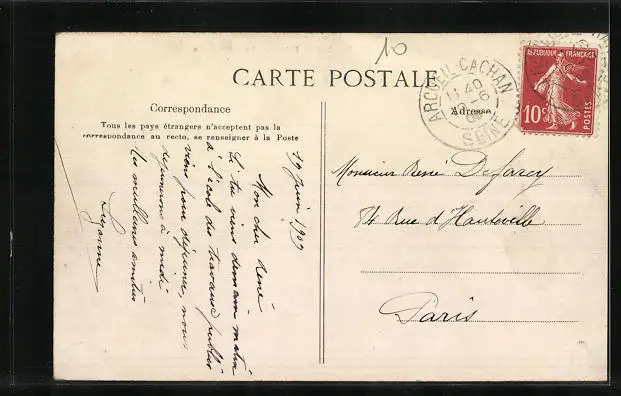 10
CARTE POSTALE
Correspondance
Tous les pays étrangers n'acceptent pas la
correspondance au recto, se renseigner à la Poste
Adresse
ARCUEIL-CACHAN
11 40
9-6
09
SEINE
REPUBLIQUE FRANÇAISE
10c
POSTES
19 Juin 1909
Mon cher René
Si tu viens demain matin
à l'école des travaux publics
viens pour déjeuner, nous
déjeunerons à midi
Tes meilleures amitiés
Suzanne
Monsieur René Defarcy
74 Rue d'Hauteville
Paris